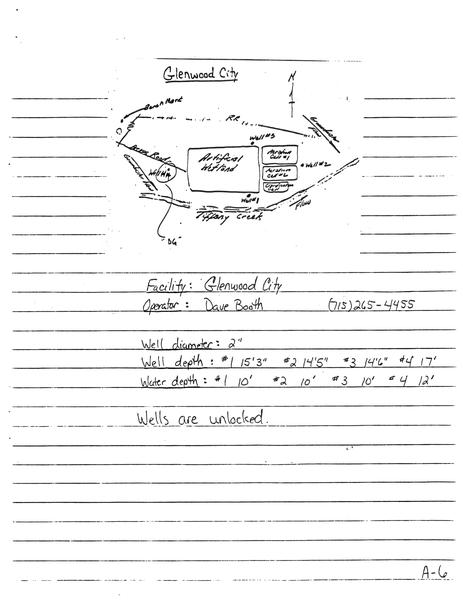 Glenwood City
N
Bench Mark
RR
Groundwater
Flow
Well #3
Access Road
Artificial
Wetland
Aeration
Cell #1
Well #2
Well #4
Aeration
Cell #2
Groundwater Flow
Well #1
Flow
Tiffany Creek
"DG"
Facility: Glenwood City
Operator: Dave Booth (715) 265-4455
Well diameter: 2"
Well depth: #1 15'3" #2 14'5" #3 14'6" #4 17'
Water depth: #1 10' #2 10' #3 10' #4 12'
Wells are unlocked.
A-6